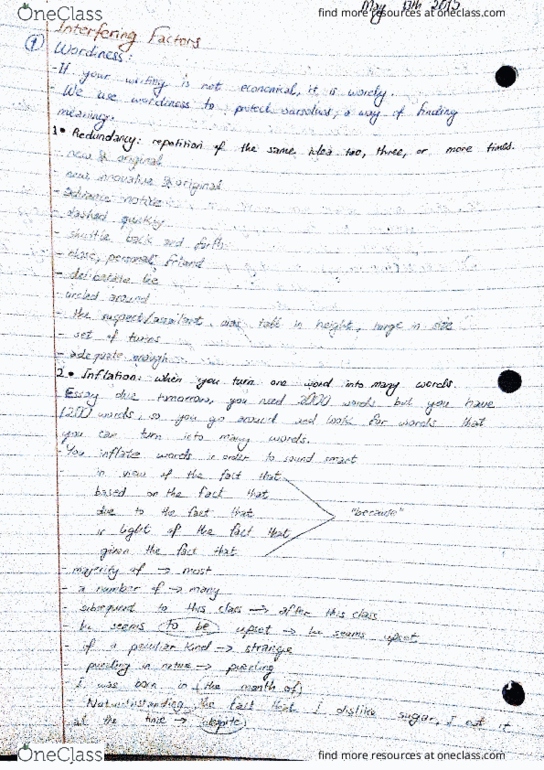 OneClass
find more resources at oneclass.com
May 13th 2015
Interfering Factors
① Wordiness:
-If your writing is not economical, it is wordy.
-We use wordiness to protect ourselves, a way of finding
meaning.
1• Redundancy: repetition of the same idea two, three, or more times.
- new & original
- new innovative & original
- advance notice
- dashed quickly
- shuttle back and forth
- close, personal friend
- deliberate lie
- circled around
- the suspect/assailant was tall in height, large in size
- set of twins
- adequate enough
2• Inflation: when you turn one word into many words.
Essay due tomorrow, you need 2000 words but you have
1200 words, so you go around and look for words that
you can turn into many words.
-You inflate words in order to sound smart
in view of the fact that
based on the fact that
due to the fact that "because"
in light of the fact that
given the fact that
- majority of → most
- a number of → many
- subsequent to this class → after this class
- he seems to be upset → he seems upset
- of a peculiar kind → strange
- puzzling in nature → puzzling
- I was born in (the month of)
- Notwithstanding the fact that I dislike sugar, I eat it
all the time → despite
OneClass
find more resources at oneclass.com